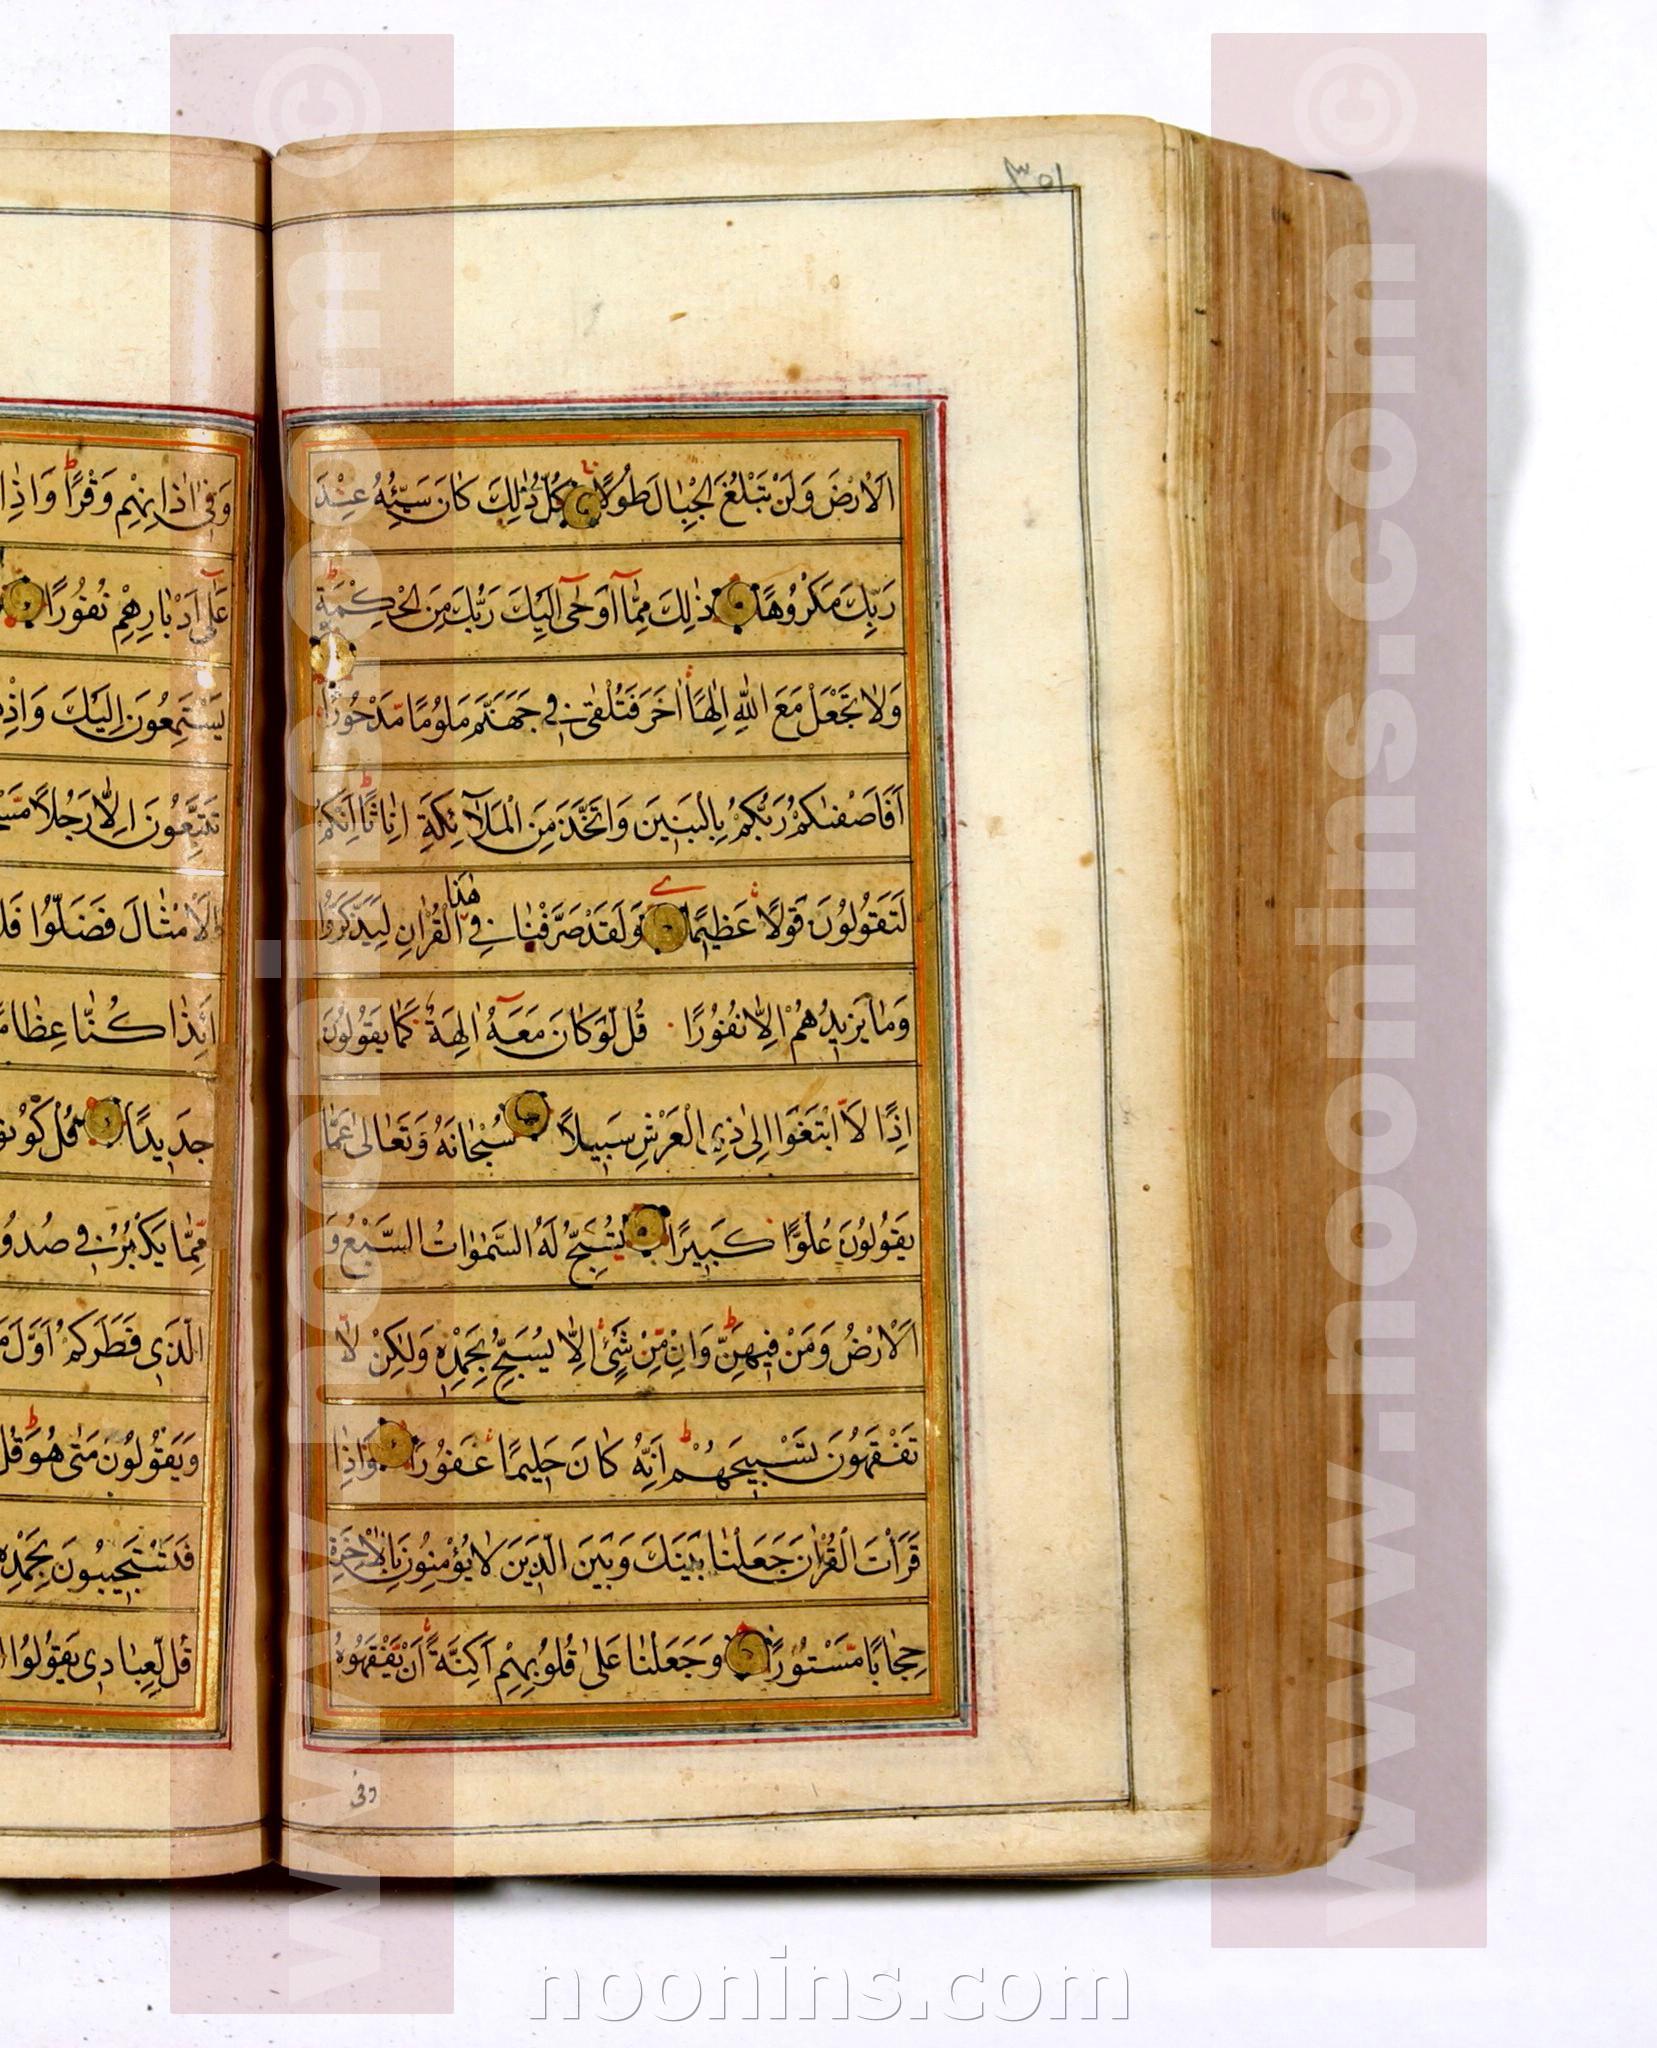 ٣٥١
الْاَرْضَ وَلَنْ تَبْلُغَ الْجِبٰالَ طُولًا كُلُّ ذٰلِكَ كٰانَ سَيِّئُهُ عِنْدَ
رَبِّكَ مَكْرُوهًا ذٰلِكَ مِمّٰآ اَوْحٰٓى اِلَيْكَ رَبُّكَ مِنَ الْحِكْمَةِ
وَلٰا تَجْعَلْ مَعَ اللّٰهِ اِلٰهًا اٰخَرَ فَتُلْقٰى فِي جَهَنَّمَ مَلُومًا مَّدْحُورًا
اَفَاَصْفٰىكُمْ رَبُّكُمْ بِالْبَنِينَ وَاتَّخَذَ مِنَ الْمَلٰٓائِكَةِ اِنٰاثًا اِنَّكُمْ
لَتَقُولُونَ قَوْلًا عَظِيمًا وَلَقَدْ صَرَّفْنٰا فِي هٰذَا الْقُرْاٰنِ لِيَذَّكَّرُوا
وَمٰا يَزِيدُهُمْ اِلّٰا نُفُورًا قُلْ لَّوْ كٰانَ مَعَهُٓ اٰلِهَةٌ كَمٰا يَقُولُونَ
اِذًا لَّا ابْتَغَوْا اِلٰى ذِي الْعَرْشِ سَبِيلًا سُبْحٰانَهُ وَتَعٰالٰى عَمّٰا
يَقُولُونَ عُلُوًّا كَبِيرًا تُسَبِّحُ لَهُ السَّمٰوٰاتُ السَّبْعُ وَ
الْاَرْضُ وَمَنْ فِيهِنَّ وَاِنْ مِّنْ شَيْءٍ اِلّٰا يُسَبِّحُ بِحَمْدِهِ وَلٰكِنْ لّٰا
تَفْقَهُونَ تَسْبِيحَهُمْ اِنَّهُ كٰانَ حَلِيمًا غَفُورًا وَاِذٰا
قَرَاْتَ الْقُرْاٰنَ جَعَلْنٰا بَيْنَكَ وَبَيْنَ الَّذِينَ لٰا يُؤْمِنُونَ بِالْاٰخِرَةِ
حِجٰابًا مَّسْتُورًا وَجَعَلْنٰا عَلٰى قُلُوبِهِمْ اَكِنَّةً اَنْ يَفْقَهُوهُ
وفى
وَفِي اٰذٰانِهِمْ وَقْرًا وَاِذٰا
عَلٰٓى اَدْبٰارِهِمْ نُفُورًا
يَسْتَمِعُونَ اِلَيْكَ وَاِذْ
تَتَّبِعُونَ اِلّٰا رَجُلًا
الْاَمْثٰالَ فَضَلُّوا فَلٰا
اَئِذٰا كُنّٰا عِظٰامًا
جَدِيدًا قُلْ كُونُوا
مِّمّٰا يَكْبُرُ فِي صُدُو
الَّذِي فَطَرَكُمْ اَوَّلَ
وَيَقُولُونَ مَتٰى هُوَ قُلْ
فَتَسْتَجِيبُونَ بِحَمْدِهِ
قُلْ لِّعِبٰادِي يَقُولُوا
www.noonins.com ©
www.noonins.com ©
noonins.com